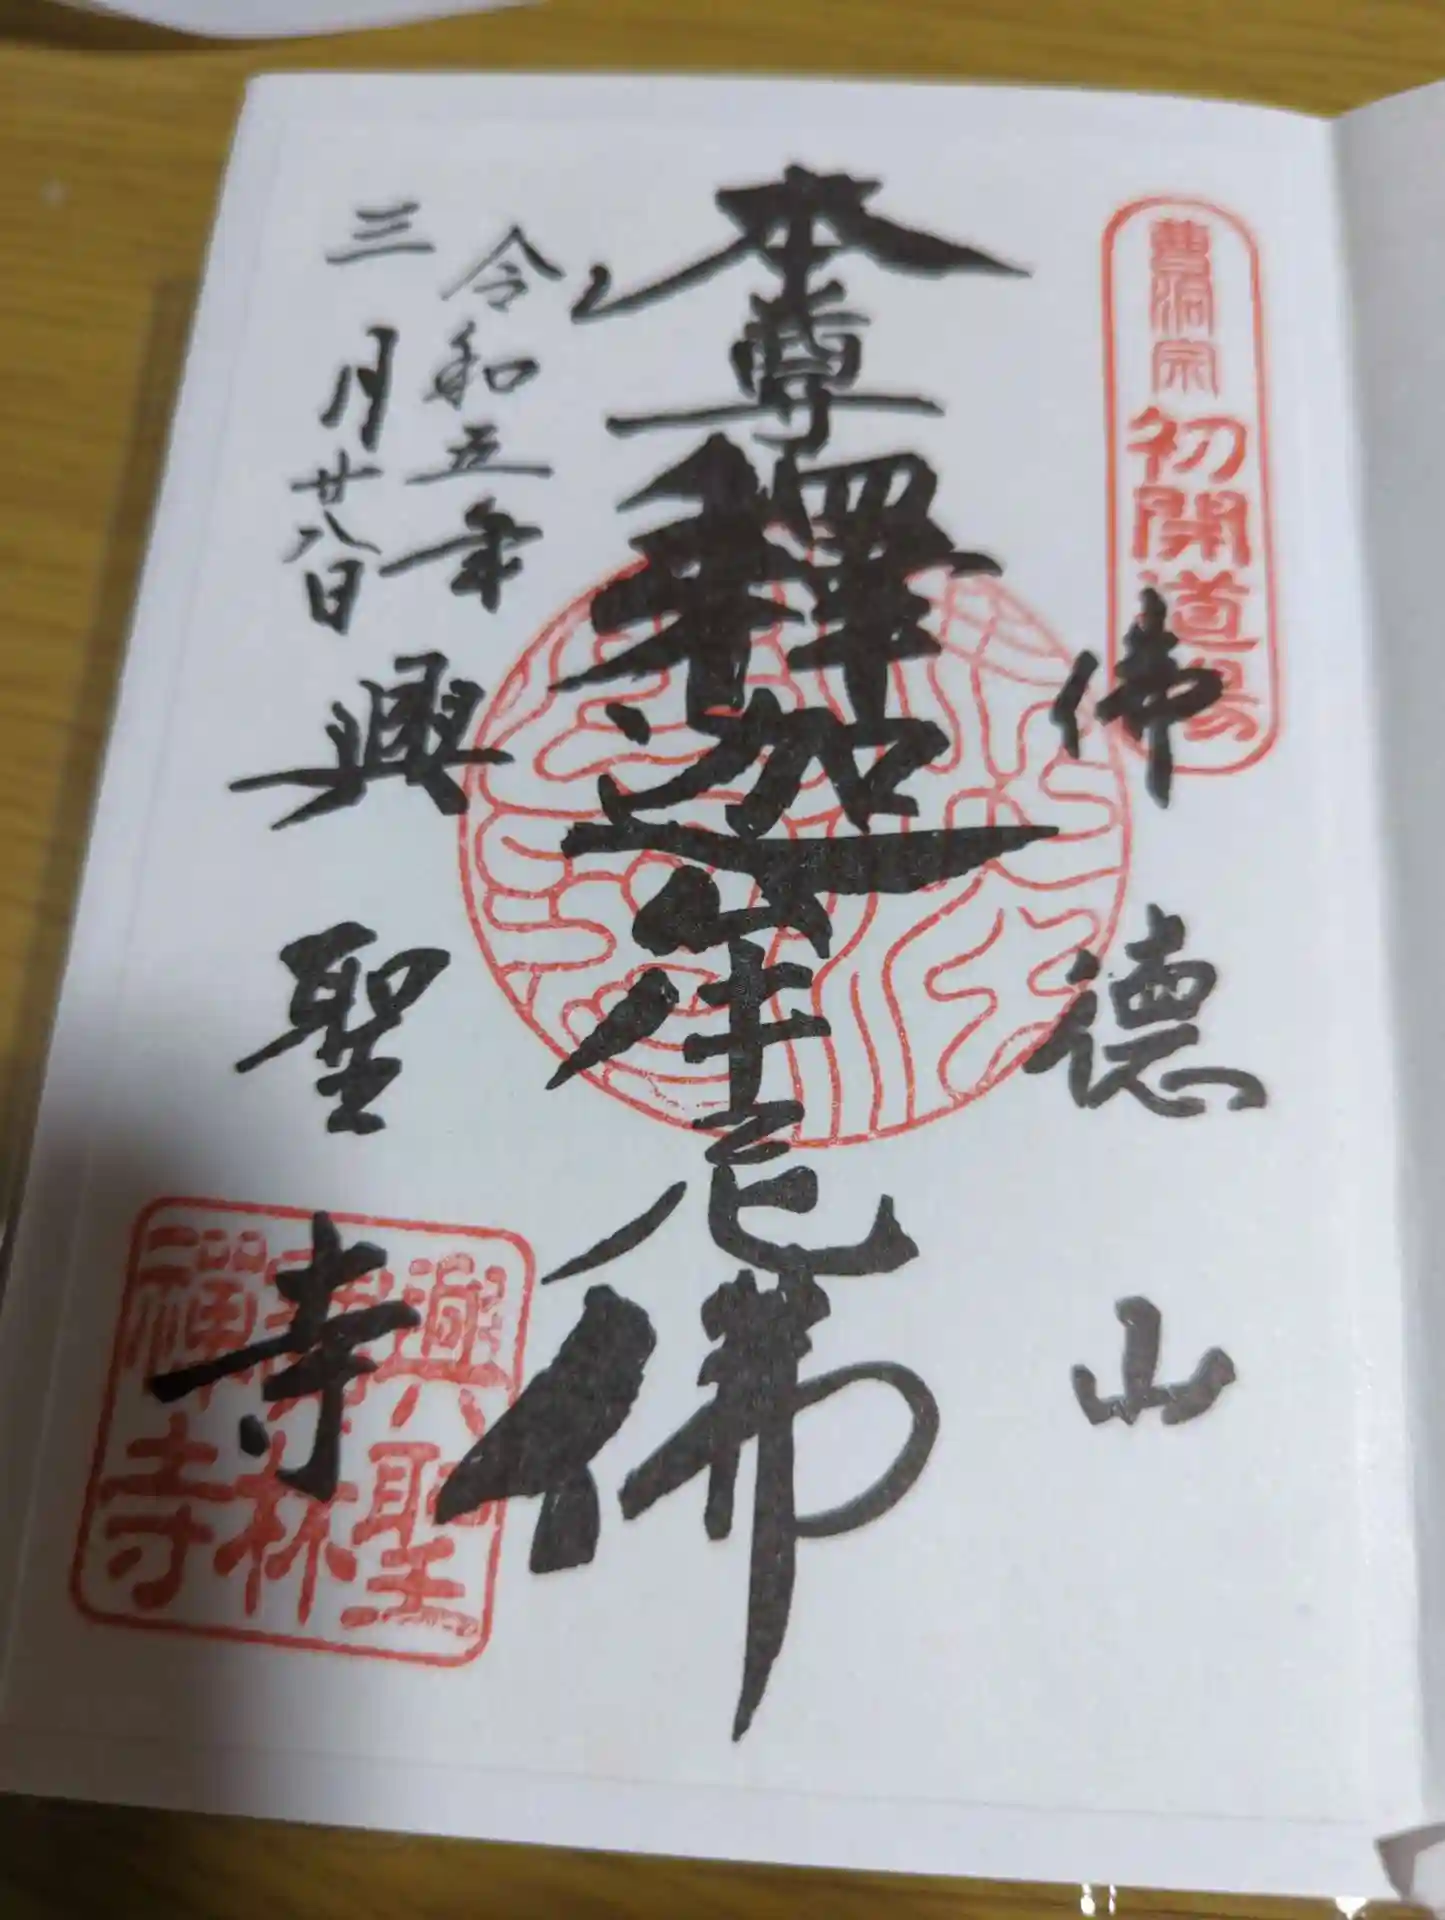 曹洞宗 初開道場
佛德山
本尊釋迦牟尼佛
令和五年
三月廿八日
興聖寺
興聖
林
禅寺